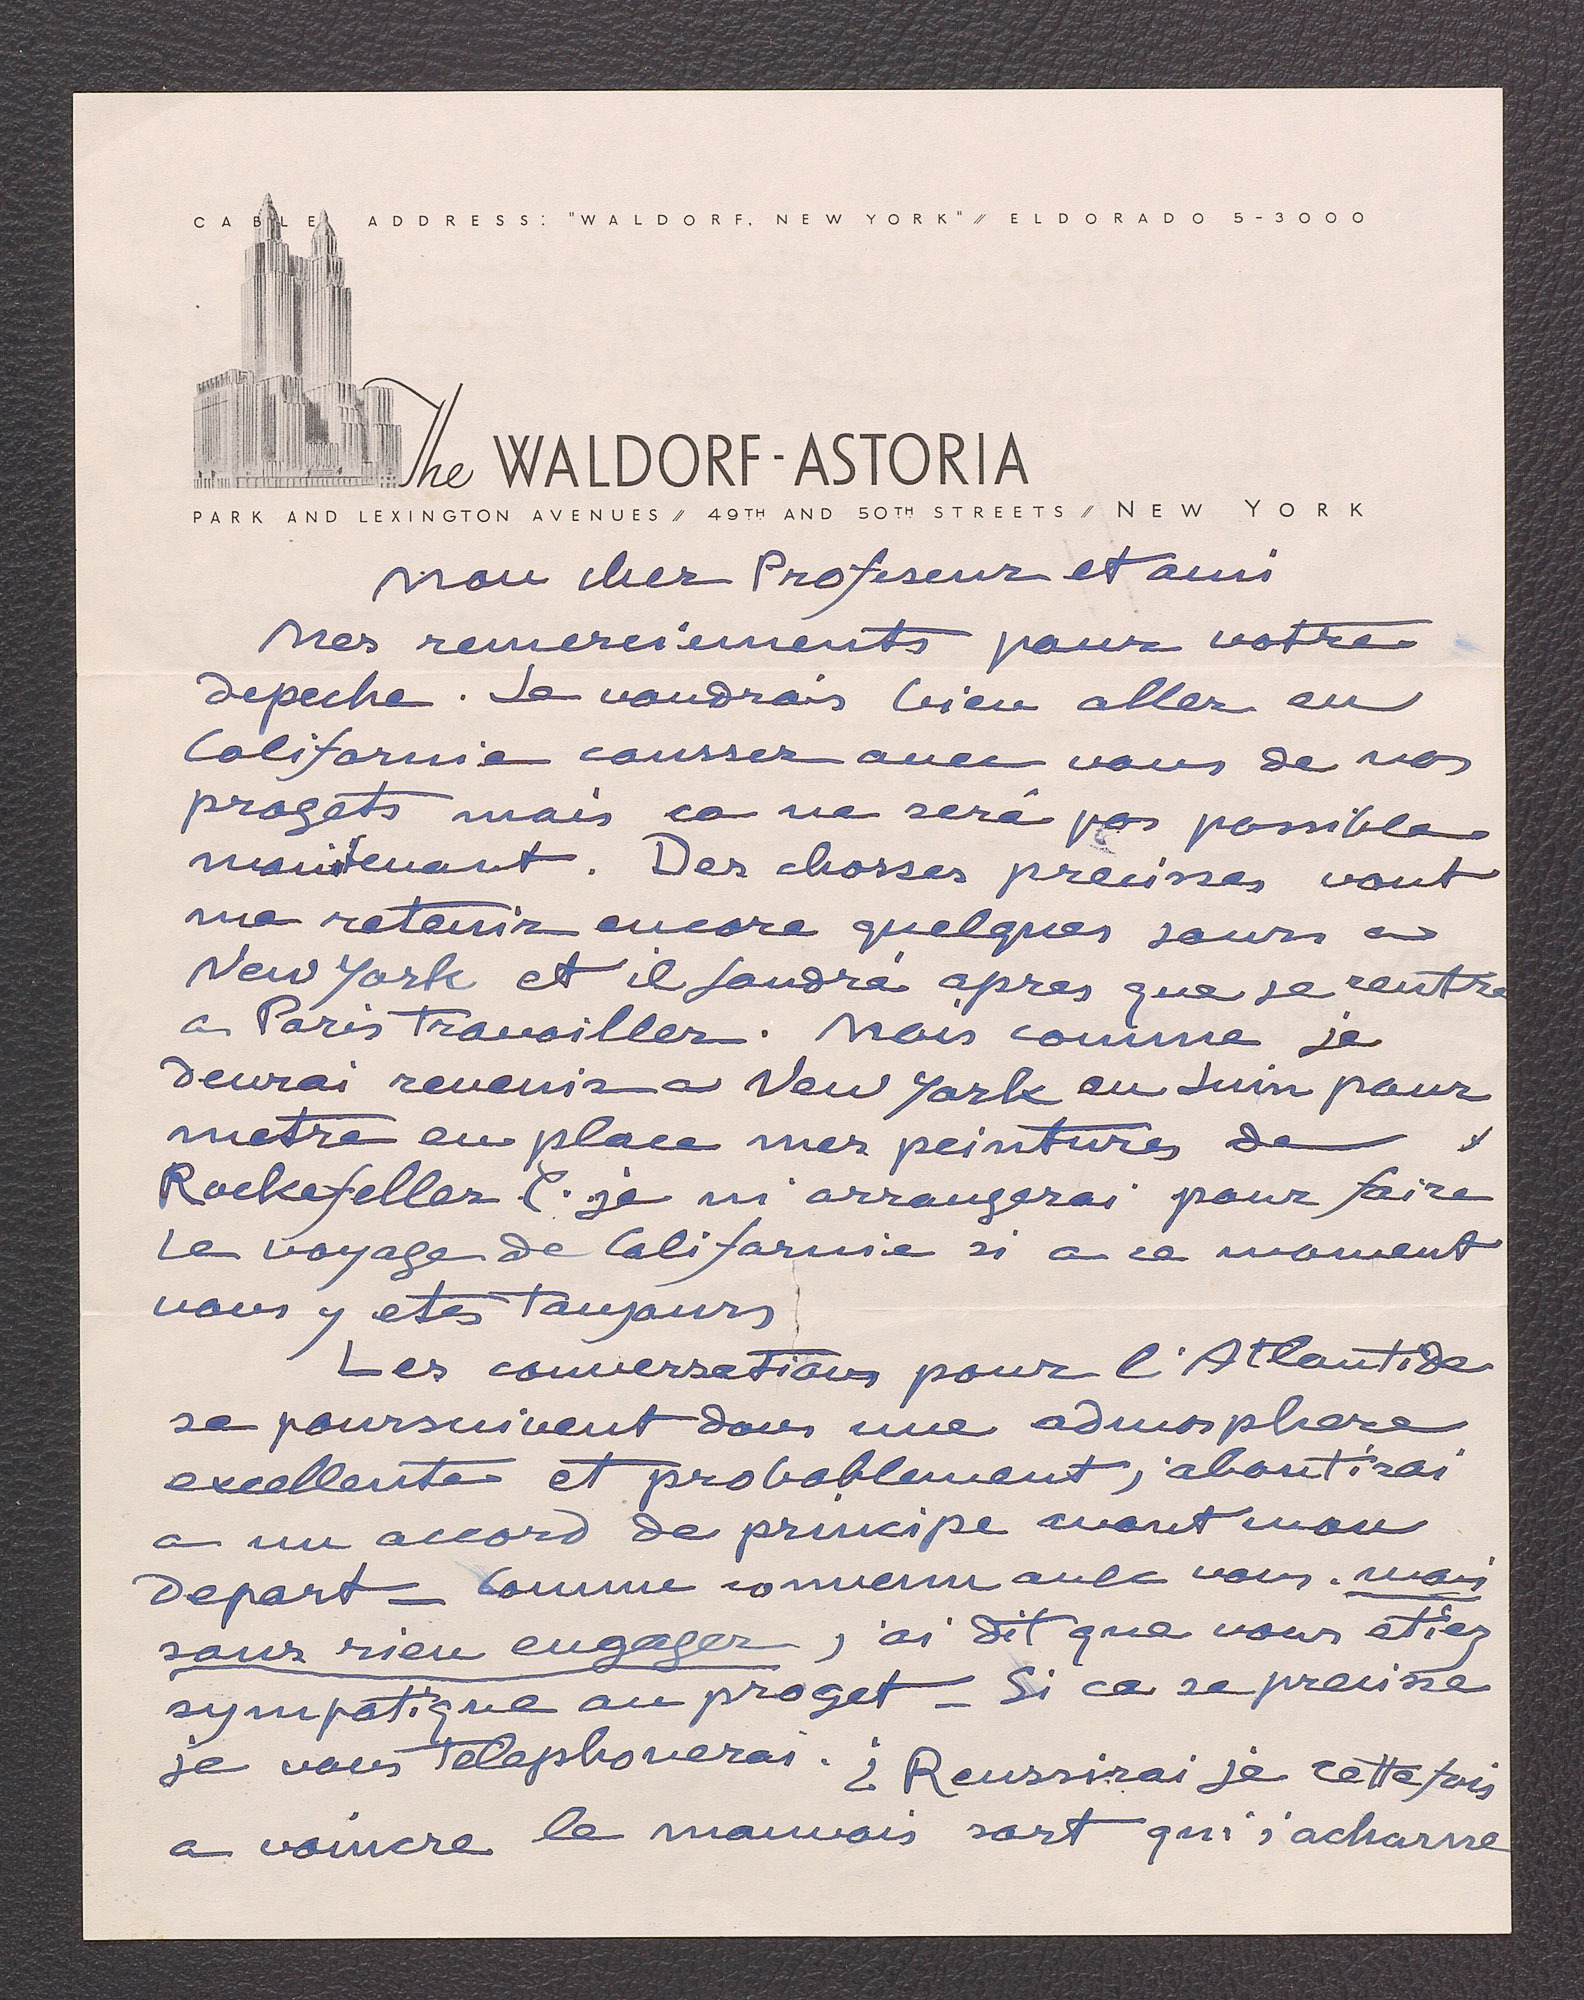 CABLE ADDRESS: "WALDORF, NEW YORK" // ELDORADO 5-3000
The WALDORF-ASTORIA
PARK AND LEXINGTON AVENUES // 49TH AND 50TH STREETS // NEW YORK
Mon cher Profeseur et ami
Mes remerciements pour votre
depeche. Je voudrais bien aller en
Californie causser avec vous de nos
progets mais ca ne serà pas possible
maintenant. Des chosses precisses vont
me retenir encore quelques jours a
New York et il faudrà apres que je rentre
a Paris travailler. Mais comme je
devrai revenir a New York en Juin pour
metre en place mes peintures de
Rockefeller C. je m'arrangerai pour faire
le voyage de Californie si a ce moment
vous y etes toujours
Les conversations pour l'Atlantide
se poursuivent dans une admosphere
excellente et probablement j'aboutirai
a un accord de principe avant mon
depart – Comme convenu avec vous. mais
sans rien engager, j'ai dit que vous etiez
sympatique au proget – Si ca se precisse
je vous telephonerai. ¿Reussirai je cette fois
a vaincre le mauvais sort qui s'acharne